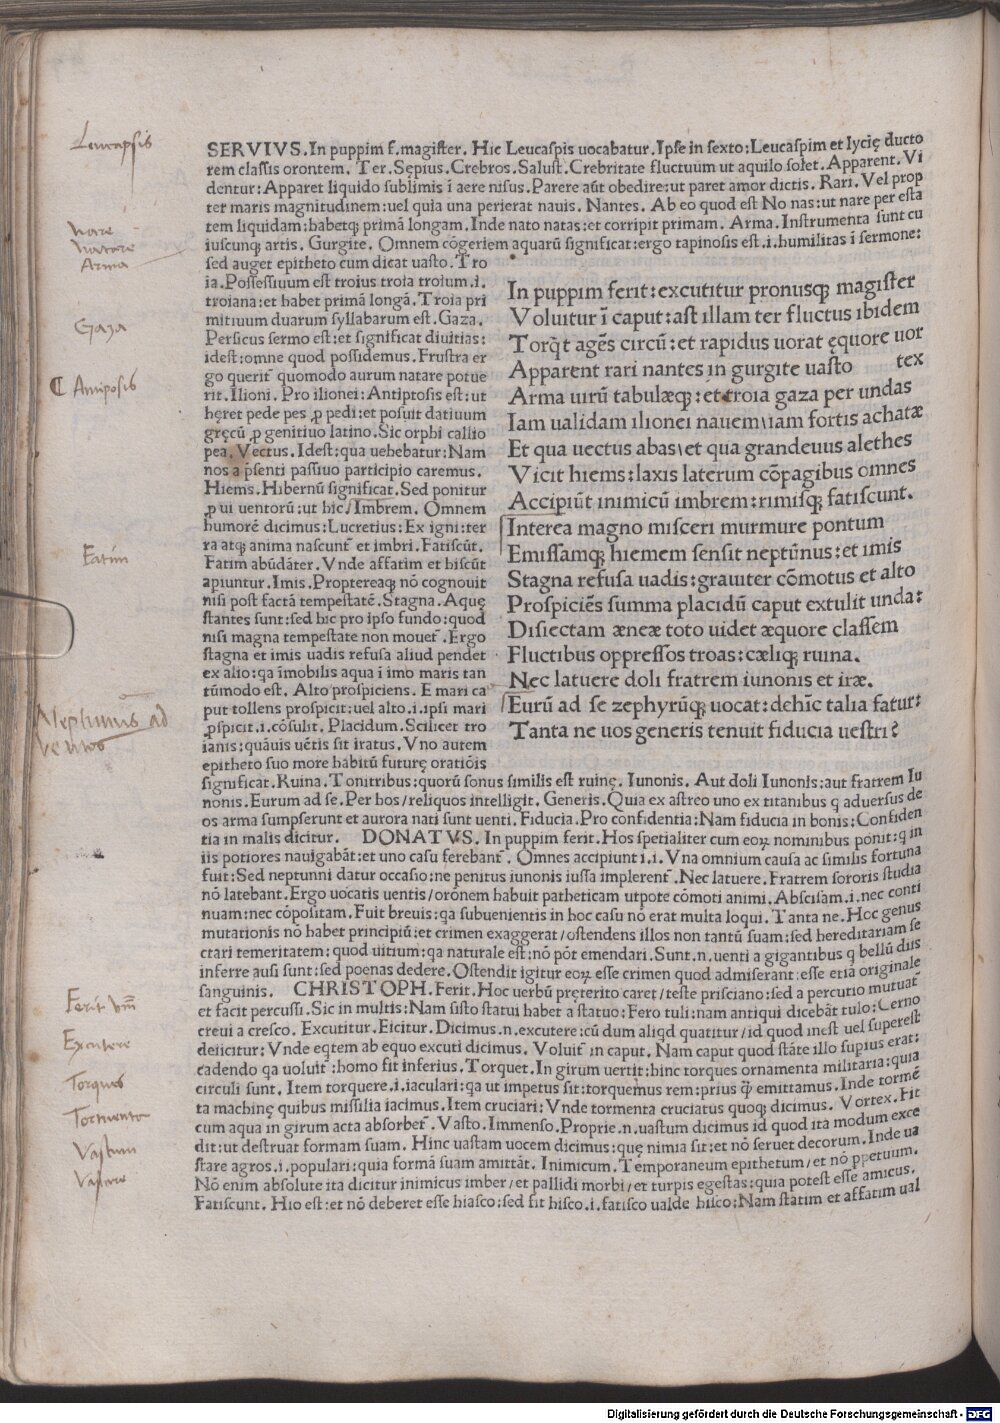 Leucapsis
SERVIVS. In puppim f. magister. Hic Leucaspis uocabatur. Ipse in sexto: Leucaspim et lycię ducto
rem classis orontem. Ter. Sępius. Crebros. Salust. Crebritate fluctuum ut aquilo solet. Apparent. Vi
dentur: Apparet liquido sublimis ī aere nisus. Parere aūt obedire: ut paret amor dictis. Rari. Vel prop
ter maris magnitudinem: uel quia una perierat nauis. Nantes. Ab eo quod est No nas: ut nare per esta
tem liquidam: habetqꝫ primā longam. Inde nato natas: et corripit primam. Arma. Instrumenta sunt cu
iuscunqꝫ artis. Gurgite. Omnem cōgeriem aquarū significat: ergo tapinosis est .i. humilitas ī sermone:
nare
natare
Arma
Gaza
₵ Antiposis
Fatim
Neptunus ad
ventos
sed auget epitheto cum dicat uasto. Tro
ia. Possessiuum est troius troia troium .i.
troiana: et habet primā longā. Troia pri
mitiuum duarum syllabarum est. Gaza.
Persicus sermo est: et significat diuitias:
idest: omne quod possidemus. Frustra er
go querit̄ quomodo aurum natare potue
rit. Ilioni. Pro ilionei: Antiptosis est: ut
hęret pede pes ꝓ pedi: et posuit datiuum
gręcū ꝓ genitiuo latino. Sic orphi callio
pea. Vectus. Idest: qua uehebatur: Nam
nos a p̄senti passiuo participio caremus.
Hiems. Hibernū significat. Sed ponitur
ꝓ ui uentorū: ut hic. Imbrem. Omnem
humorē dicimus: Lucretius: Ex igni: ter
ra atqꝫ anima nascunt̄ et imbri. Fatiscūt.
Fatim abūdāter. Vnde affatim et hiscūt
apiuntur. Imis. Proptereaqꝫ nō cognouit
nisi post factā tempestatē. Stagna. Aquę
stantes sunt: sed hic pro ipso fundo: quod
nisi magna tempestate non mouet̄. Ergo
stagna et imis uadis refusa aliud pendet
ex alio: qa īmobilis aqua ī imo maris tan
tūmodo est. Alto prospiciens. E mari ca
put tollens prospicit: uel alto .i. ipsi mari
ꝓspicit .i. cōsulit. Placidum. Scilicet tro
ianis: quāuis uētis sit iratus. Vno autem
epitheto suo more habitū futurę oratiōis
In puppim ferit: excutitur pronusqꝫ magister
Voluitur ī caput: ast illam ter fluctus ibidem
Torq̄t agēs circū: et rapidus uorat ęquore uor
Apparent rari nantes in gurgite uasto tex
Arma uirū tabulæqꝫ: et troia gaza per undas
Iam ualidam ilionei nauem iam fortis achatæ
Et qua uectus abas et qua grandeuus alethes
Vicit hiems: laxis laterum cōpagibus omnes
Accipiūt inimicū imbrem: rimisqꝫ fatiscunt.
Interea magno misceri murmure pontum
Emissamqꝫ hiemem sensit neptūnus: et imis
Stagna refusa uadis: grauiter cōmotus et alto
Prospiciēs summa placidū caput extulit unda:
Disiectam æneæ toto uidet æquore classem
Fluctibus oppressos troas: cæliqꝫ ruina.
Nec latuere doli fratrem iunonis et iræ.
Eurū ad se zephyrūqꝫ uocat: dehīc talia fatur:
Tanta ne uos generis tenuit fiducia uestri?
significat. Ruina. Tonitribus: quorū sonus similis est ruinę. Iunonis. Aut doli Iunonis: aut fratrem Iu
nonis. Eurum ad se. Per hos/reliquos intelligit. Generis. Quia ex astreo uno ex titanibus q aduersus de
os arma sumpserunt et aurora nati sunt uenti. Fiducia. Pro confidentia: Nam fiducia in bonis: Confiden
tia in malis dicitur. DONATVS. In puppim ferit. Hos spetialiter cum eoꝝ nominibus ponit: q in
iis potiores nauigabāt: et uno casu ferebant̄. Omnes accipiunt i.i. Vna omnium causa ac similis fortuna
fuit: Sed neptunni datur occasio: ne penitus iunonis iussa implerent̄. Nec latuere. Fratrem sororis studia
nō latebant. Ergo uocatis uentis/orōnem habuit patheticam utpote cōmoti animi. Abscisam .i. nec conti
nuam: nec cōpositam. Fuit breuis: qa subuenientis in hoc casu nō erat multa loqui. Tanta ne. Hoc genus
mutationis nō habet principiū: et crimen exaggerat/ostendens illos non tantū suam: sed hereditariam se
ctari temeritatem: quod uitium: qa naturale est: nō pōt emendari. Sunt .n. uenti a gigantibus q bellū diis
inferre ausi sunt: sed poenas dedere. Ostendit igitur eoꝝ esse crimen quod admiserant: esse etiā originale
sanguinis. CHRISTOPH. Ferit. Hoc uerbū pręterito caret/teste prisciano: sed a percutio mutuat̄
et facit percussi. Sic in multis: Nam sisto statui habet a statuo: Fero tuli: nam antiqui dicebāt tulo: Cerno
creui a cresco. Excutitur. Eicitur. Dicimus .n. excutere: cū dum aliqd quatitur/id quod inest uel superest
deiicitur: Vnde eqtem ab equo excuti dicimus. Voluit̄ in caput. Nam caput quod stāte illo supius erat:
cadendo qa uoluit̄: homo fit inferius. Torquet. In girum uertit: hinc torques ornamenta militaria: quia
circuli sunt. Item torquere .i. iaculari: qa ut impetus sit: torquemus rem: prius q̄ emittamus. Inde tormē
ta machinę quibus missilia iacimus. Item cruciari: Vnde tormenta cruciatus quoqꝫ dicimus. Vortex. Fit
cum aqua in girum acta absorbet̄. Vasto. Immenso. Proprie .n. uastum dicimus id quod ita modum exce
dit: ut destruat formam suam. Hinc uastam uocem dicimus: quę nimia sit: et nō seruet decorum. Inde ua
stare agros .i. populari: quia formā suam amittāt. Inimicum. Temporaneum epithetum/et nō ppetuum.
Nō enim absolute ita dicitur inimicus imber/et pallidi morbi/et turpis egestas: quia potest esse amicus.
Fatiscunt. Hio est: et nō deberet esse hiasco: sed fit hisco .i. fatisco ualde hisco: Nam statim et affatim ual
Ferit
Excutere
Torques
Tormenta
Vastum
Vastare
Digitalisierung gefördert durch die Deutsche Forschungsgemeinschaft - DFG